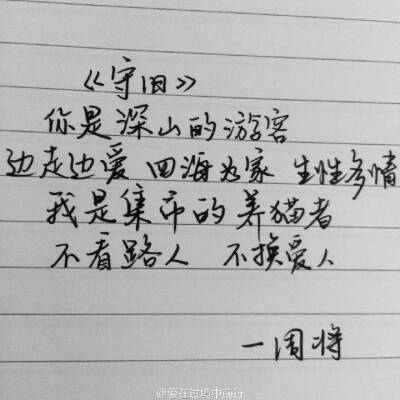 《守旧》
你是深山的游客
边走边爱 四海为家 生性多情
我是集市的养猫者
不看路人 不换爱人
一周将
@爱在过境中前行